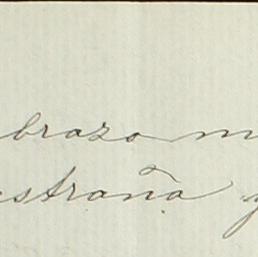 brazo m
astraña y